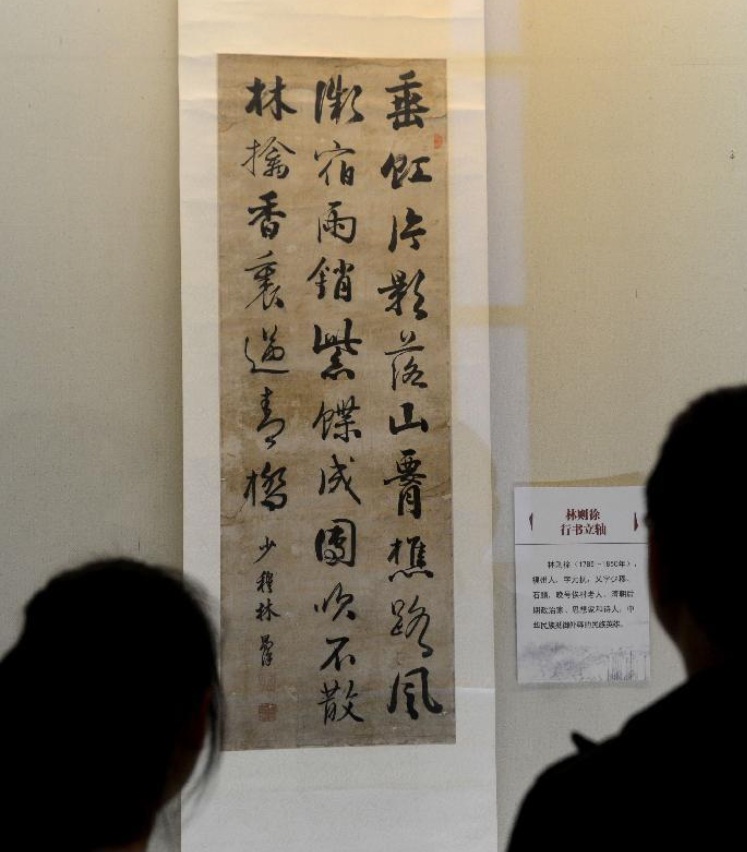 垂虹片影落山腰樵路風
微宿雨銷紫蝶成團吹不散
林檎香裏過青橋
少穆林則徐
林则徐
行书立轴
林则徐（1785－1850年），
福州人，字元抚，又字少穆、
石麟，晚号俟村老人，清朝后
期政治家、思想家和诗人，中
华民族抵御外辱的民族英雄。